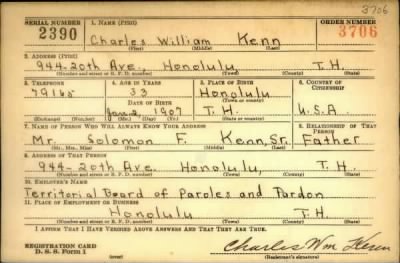 3706
SERIAL NUMBER 1. NAME (Print) ORDER NUMBER
2390 Charles William Kenn 3706
(First) (Middle) (Last)
2. ADDRESS (Print)
944-20th Ave., Honolulu, T.H.
(Number and street or R. F. D. number) (Town) (County) (State)
3. TELEPHONE 4. AGE IN YEARS 5. PLACE OF BIRTH 6. COUNTRY OF CITIZENSHIP
79165 33 Honolulu
DATE OF BIRTH (Town or county)
Jan. 2, 1907 T.H. U.S.A.
(Exchange) (Number) (Mo.) (Day) (Yr.) (State or country)
7. NAME OF PERSON WHO WILL ALWAYS KNOW YOUR ADDRESS 8. RELATIONSHIP OF THAT PERSON
Mr. Solomon F. Kenn, Sr. Father
(Mr., Mrs., Miss) (First) (Middle) (Last)
9. ADDRESS OF THAT PERSON
944-20th Ave. Honolulu, T.H.
(Number and street or R. F. D. number) (Town) (County) (State)
10. EMPLOYER'S NAME
Territorial Board of Paroles and Pardon
11. PLACE OF EMPLOYMENT OR BUSINESS
Honolulu T.H.
(Number and street or R. F. D. number) (Town) (County) (State)
I AFFIRM THAT I HAVE VERIFIED ABOVE ANSWERS AND THAT THEY ARE TRUE.
REGISTRATION CARD
D. S. S. Form 1 Charles Wm Kenn
(Registrant's signature)